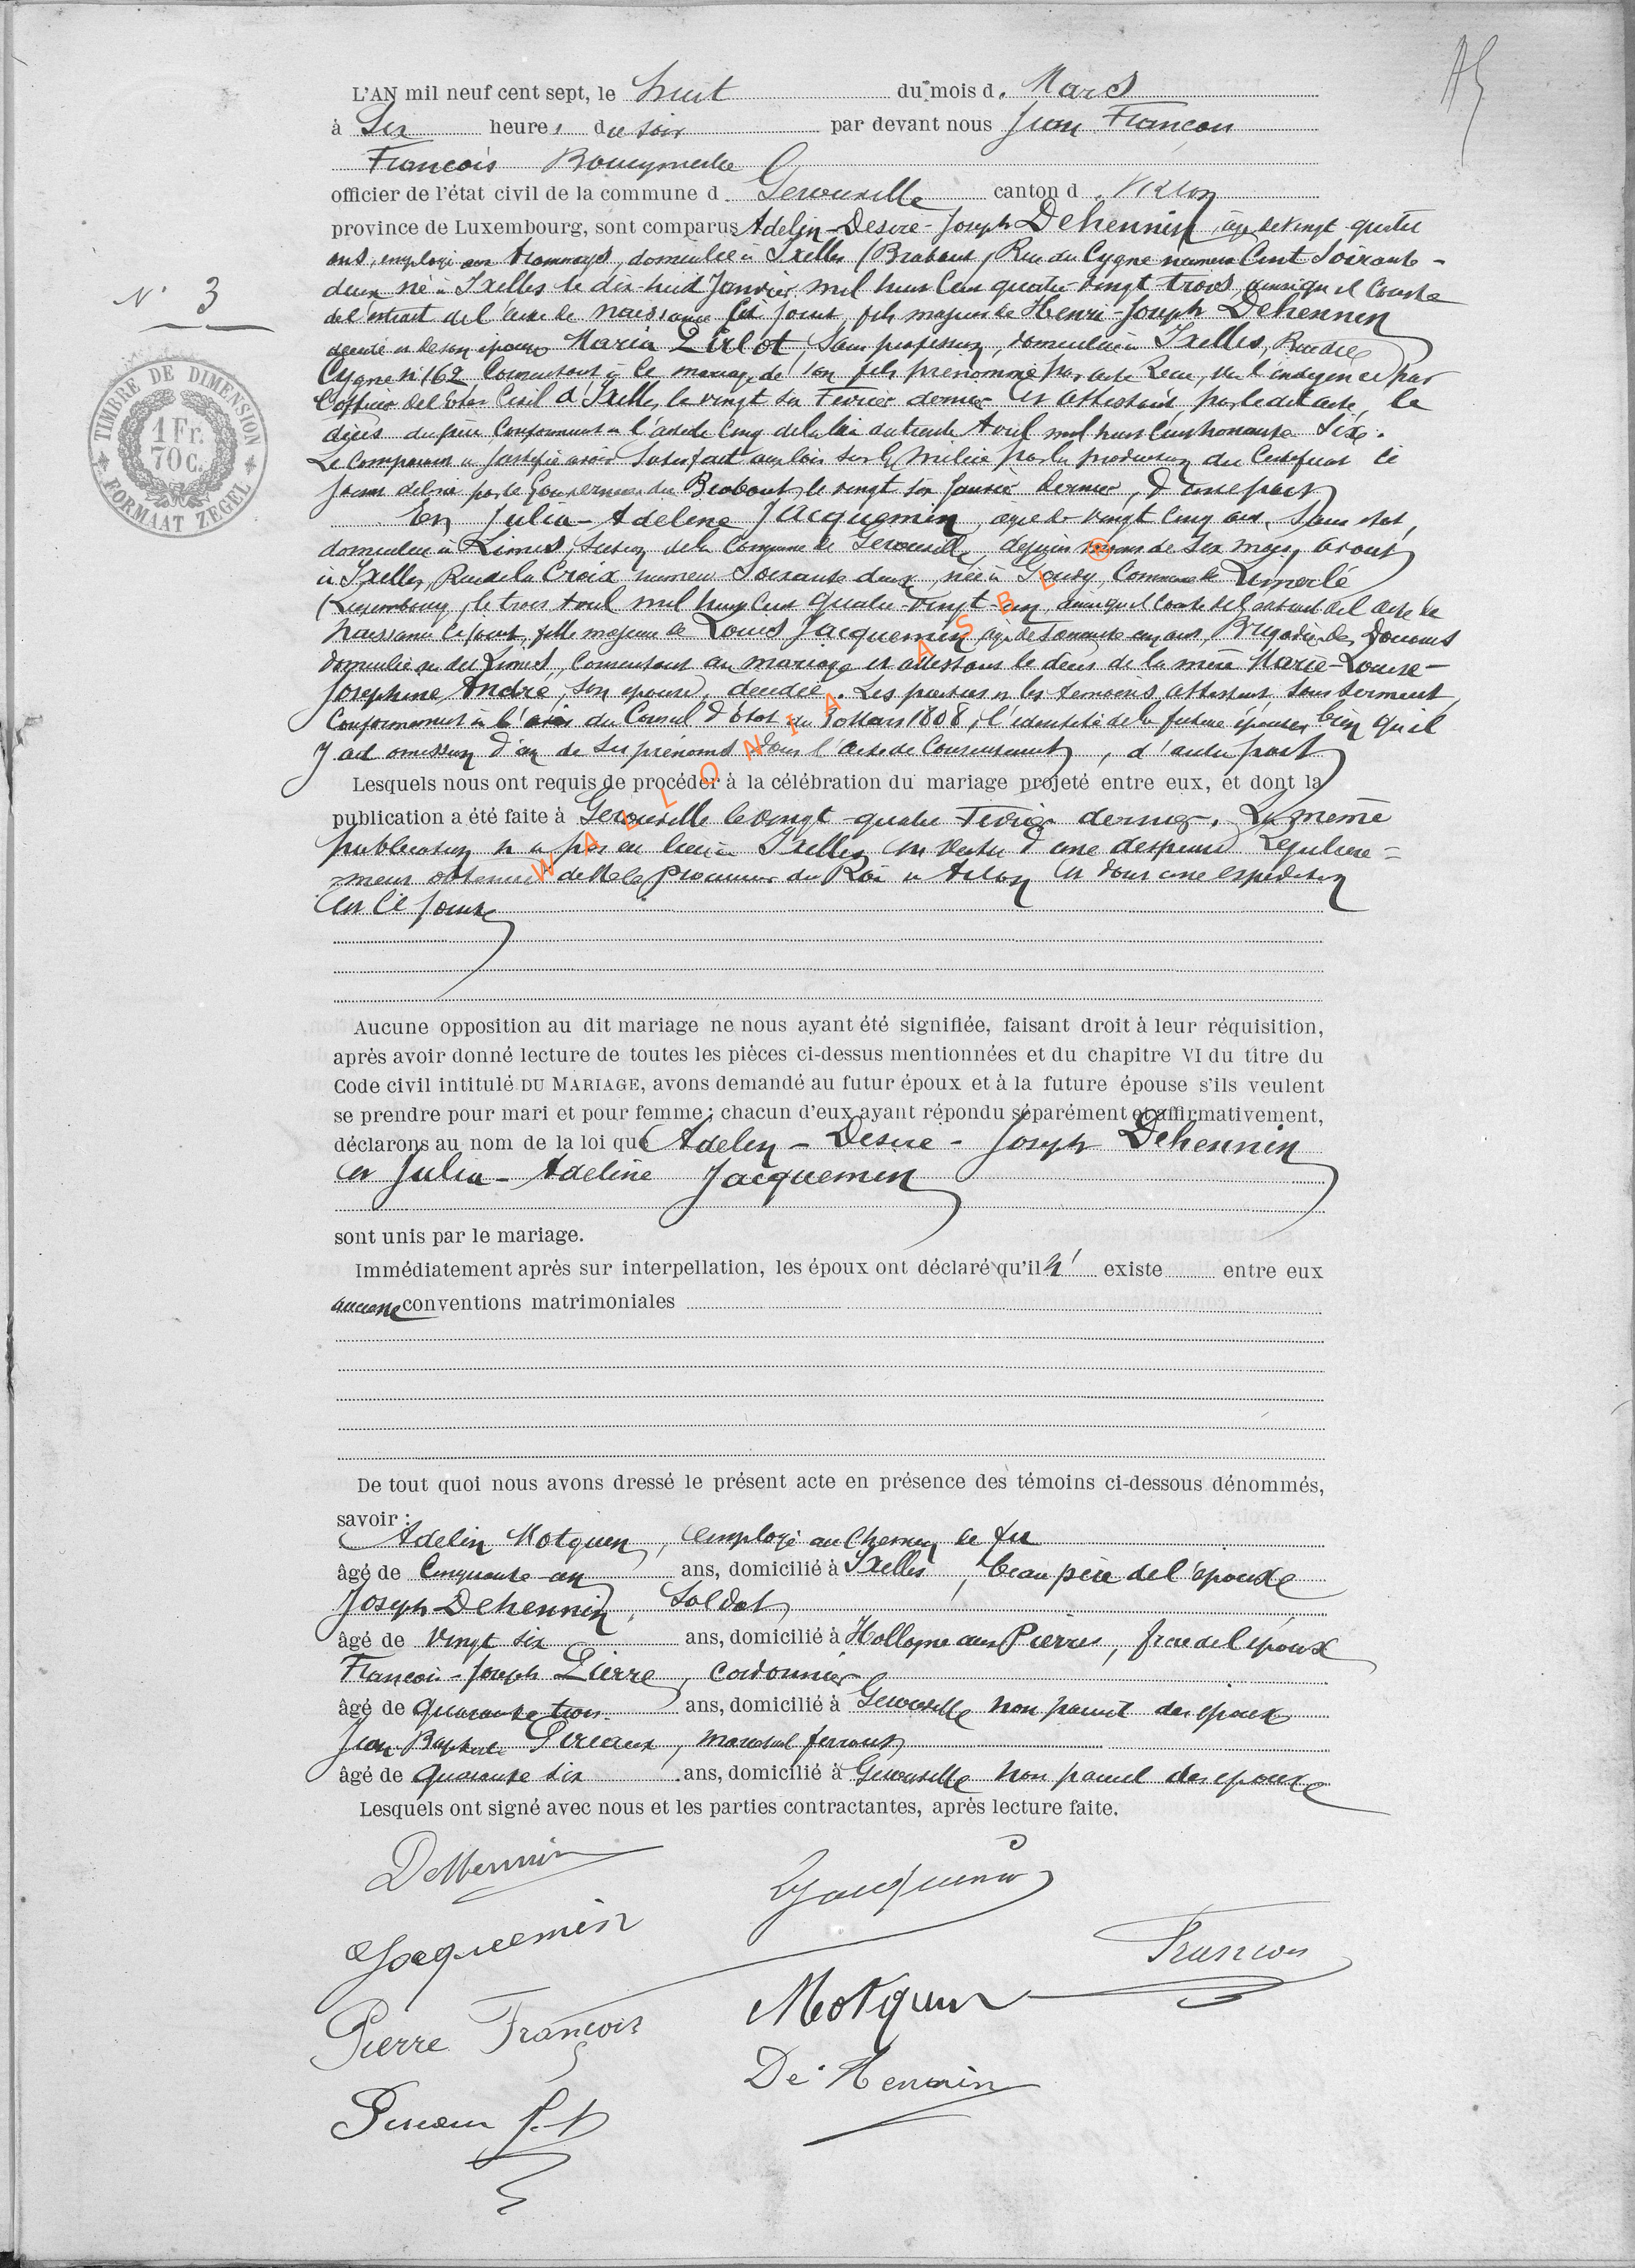 L'AN mil neuf cent sept, le huit du mois d. Mars
à Six heures du soir par devant nous Jean François
François Bourgmestre
officier de l'état civil de la commune d. Gerouville canton d. Virton
province de Luxembourg, sont comparus Adelin-Desiré-Joseph Dehennin, âgé de vingt quatre
ans, employé aux tramways, domicilié à Ixelles (Brabant) Rue du Cygne numéro Cent Soixante-
deux né à Ixelles le dix-huit Janvier mil huit Cent quatre-vingt-trois, ainsi qu'il Conste
de l'extrait de l'acte de naissance Ci joint, fils majeur de Henri-Joseph Dehennin
décédé et de son épouse Maria Pirlot, Sans profession, domiciliée à Ixelles, Rue du
Cygne n° 162, Consentant à Ce mariage de son fils prénommé par acte Recu, vu l'indigence par
l'officier de l'état Civil d'Ixelles, le vingt six Fevrier dernier et attestant, par le dit acte, le
décès du père Conformément à l'article Cinq de la loi du trente Avril mil huit Cent nonante Six.
Le Comparant a justifié avoir Satisfait aux lois sur la milice par la production du Certificat Ci
joint délivré par le Gouverneur du Brabant, le vingt six Janvier dernier, d'une part
Et Julia-Adeline Jacquemin, agée de vingt Cinq ans, Sans état,
domiciliée à Limes, Section de la Commune de Gerouville, depuis moins de Six mois, avant
à Ixelles, Rue de la Croix numéro Soixante deux, née à Gouvy, Commune de Limerlé
(Luxembourg), le trois Avril mil huit Cent quatre-vingt-un, ainsi qu'il Conste de l'extrait de l'acte de
naissance Ci joint, fille majeure de Louis Jacquemin, âgé de Soixante ans, Brigadier des Douanes
domicilié au dit Limes, Consentant au mariage et attestant le décès de la mère Marie-Louise-
Josephine André, son épouse, décédée. Les parties et les témoins attestent, sous serment,
Conformément à l'avis du Conseil d'état du 30 Mars 1808, l'identité de la future épouse, bien qu'il
y ait omission d'un de ses prénoms dans l'acte de Consentement, d'autre part
Lesquels nous ont requis de procéder à la célébration du mariage projeté entre eux, et dont la
publication a été faite à Gerouville le vingt-quatre Fevrier dernier. La même
publication n'a pas eu lieu à Ixelles en vertu d'une dispense Régulière-
ment obtenue de M le Procureur du Roi à Arlon et dont une expédition
est Ci jointe
Aucune opposition au dit mariage ne nous ayant été signifiée, faisant droit à leur réquisition,
après avoir donné lecture de toutes les pièces ci-dessus mentionnées et du chapitre VI du titre du
Code civil intitulé DU MARIAGE, avons demandé au futur époux et à la future épouse s'ils veulent
se prendre pour mari et pour femme ; chacun d'eux ayant répondu séparément et affirmativement,
déclarons au nom de la loi que Adelin-Desiré-Joseph Dehennin
et Julia-Adeline Jacquemin
sont unis par le mariage.
Immédiatement après sur interpellation, les époux ont déclaré qu'il n' existe entre eux
aucune conventions matrimoniales
De tout quoi nous avons dressé le présent acte en présence des témoins ci-dessous dénommés,
savoir :
Adelin Motquin, employé au Chemin de fer
âgé de Cinquante-un ans, domicilié à Ixelles, beau père de l'épouse
Joseph Dehennin, Soldat
âgé de vingt six ans, domicilié à Hollogne aux Pierres, frère de l'époux
François-Joseph Pierre, cordonnier
âgé de quarante trois ans, domicilié à Gerouville non parent des époux
Jean Baptiste Pireaux, maréchal ferrant
âgé de quarante six ans, domicilié à Gerouville non parent des époux
Lesquels ont signé avec nous et les parties contractantes, après lecture faite.
DeHennin
Jacquemin
Jacquemin
François
Pierre François
Motquin
De Hennin
Pireaux J-B
N° 3
TIMBRE DE DIMENSION
1 Fr.
70 c.
FORMAAT ZEGEL
WALLONIA ASBL ®